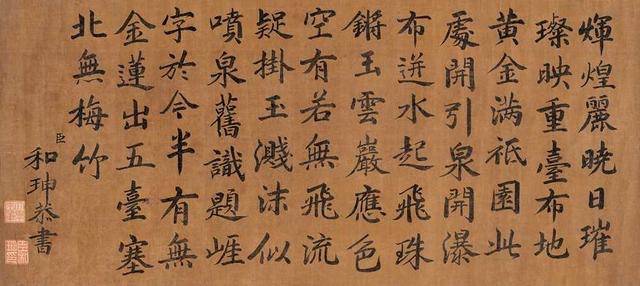 煇煌麗曉日璀
璨映重臺布地
黄金满祗園此
處開引泉開瀑
布迸水起飛珠
鏘玉雲巖應色
空有若無飛流
疑掛玉濺沫似
噴泉舊識題崕
字於今半有無
金蓮出五臺塞
北無梅竹
臣和珅恭書